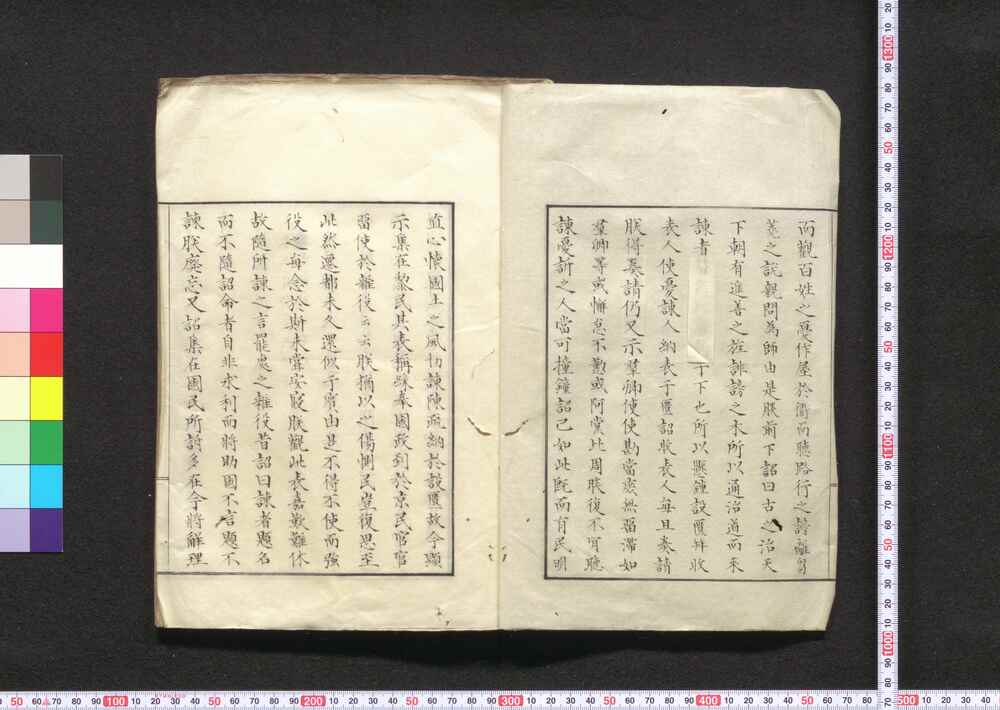 而觀百姓之憂作屋於衢而聽路行之謗雖芻
蕘之説親問為師由是朕前下詔曰古之治天
下朝有進善之旌誹謗之木所以通治道而来
諫者 于下也所以懸鐘設匱拜收
表人使憂諫人納表于匱詔收表人每旦奏請
朕得奏請仍又示羣卿便使勘當庶無留滯如
羣卿等或懈怠不懃或阿黨比周朕復不肯聽
諫憂訴之人當可撞鐘詔已如此既而有民明
直心懷國土之風切諫陳疏納於設匱故今顯
示集在黎民其表稱緣奉國政到於京民官官
留使於雜役云云朕猶以之傷惻民豈復思至
此然遷都未久還似于賓由是不得不使而強
役之每念於斯未嘗安寢朕觀此表嘉歎難休
故隨所諫之言罷處之雜役昔詔曰諫者題名
而不隨詔命者自非求利而將助國不言題不
諫朕癈忘又詔集在國民所訴多在今將解理